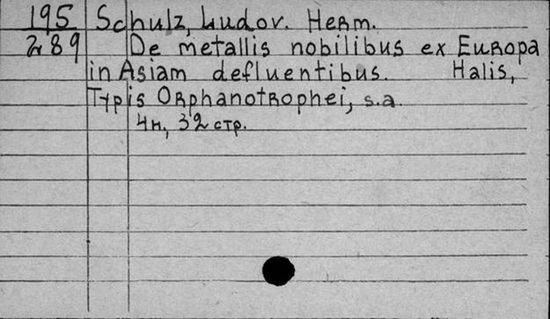 195 Schulz, Ludov. Herm.
289 De metallis nobilibus ex Europa
in Asiam defluentibus. Halis,
Typis Orphanotrophei, s.a.
4н, 32 стр.